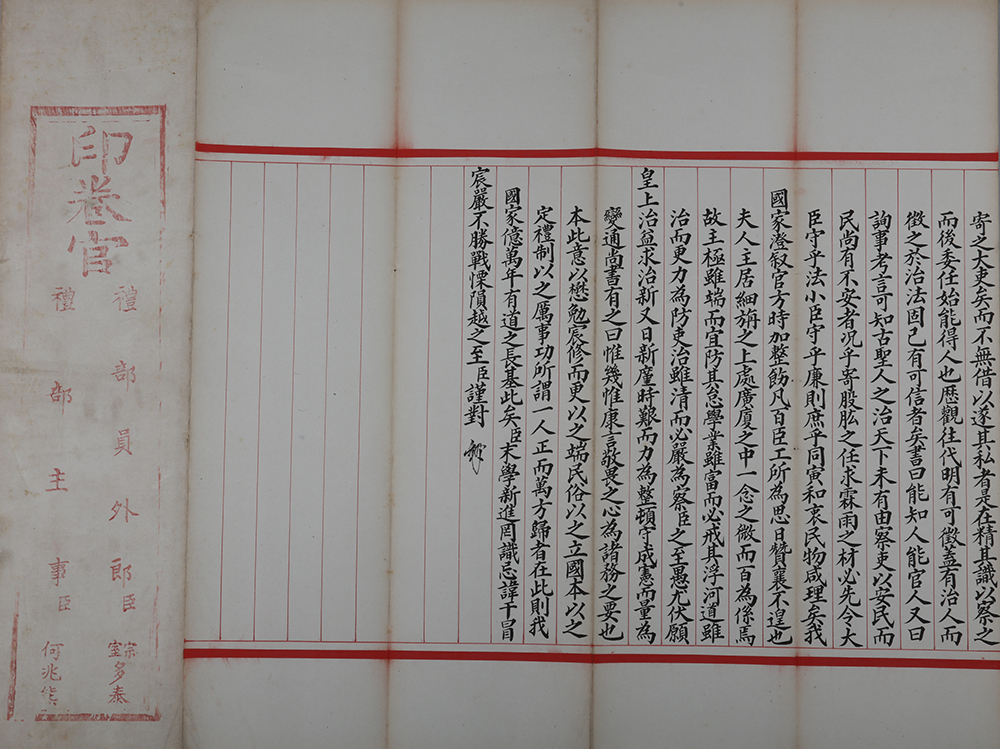 寄之大吏矣而不無借以遂其私者是在精其識以察之
而後委任始能得人也歷觀往代明有可徵蓋有治人而
徵之於治法固已有可信者矣書曰能知人能官人又曰
詢事考言可知古聖人之治天下未有由察吏以安民而
民尚有不安者況乎寄股肱之任求霖雨之材必先令大
臣守乎法小臣守乎廉則庶乎同寅和衷民物咸理矣我
國家澄敘官方時加整飭凡百臣工所為思日贊襄不遑也
夫人主居細旃之上處廣廈之中一念之微而百為係焉
故主極雖端而宜防其怠學業雖富而必戒其浮河道雖
治而更力為防吏治雖清而必嚴為察臣之至愚尤伏願
皇上治益求治新又日新廑時艱而力為整頓守成憲而量為
變通尚書有之曰惟幾惟康言敬畏之心為諸務之要也
本此意以懋勉宸修而更以之端民俗以之立國本以之
定禮制以之厲事功所謂一人正而萬方歸者在此則我
國家億萬年有道之長基此矣臣末學新進罔識忌諱干冒
宸嚴不勝戰慄隕越之至臣謹對
印卷官
禮部員外郎臣宗室多泰
禮部主事臣何兆熊